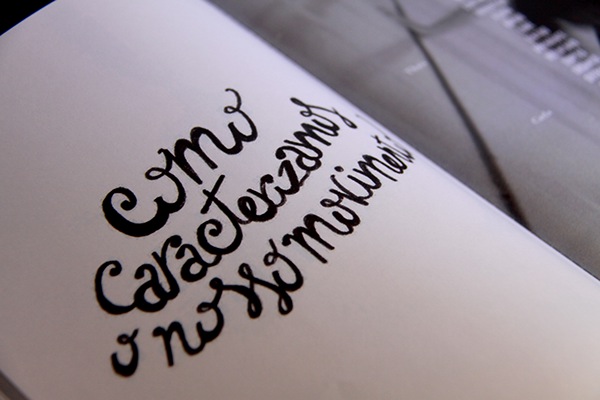 Como
Caracterizamos
o nosso movimento